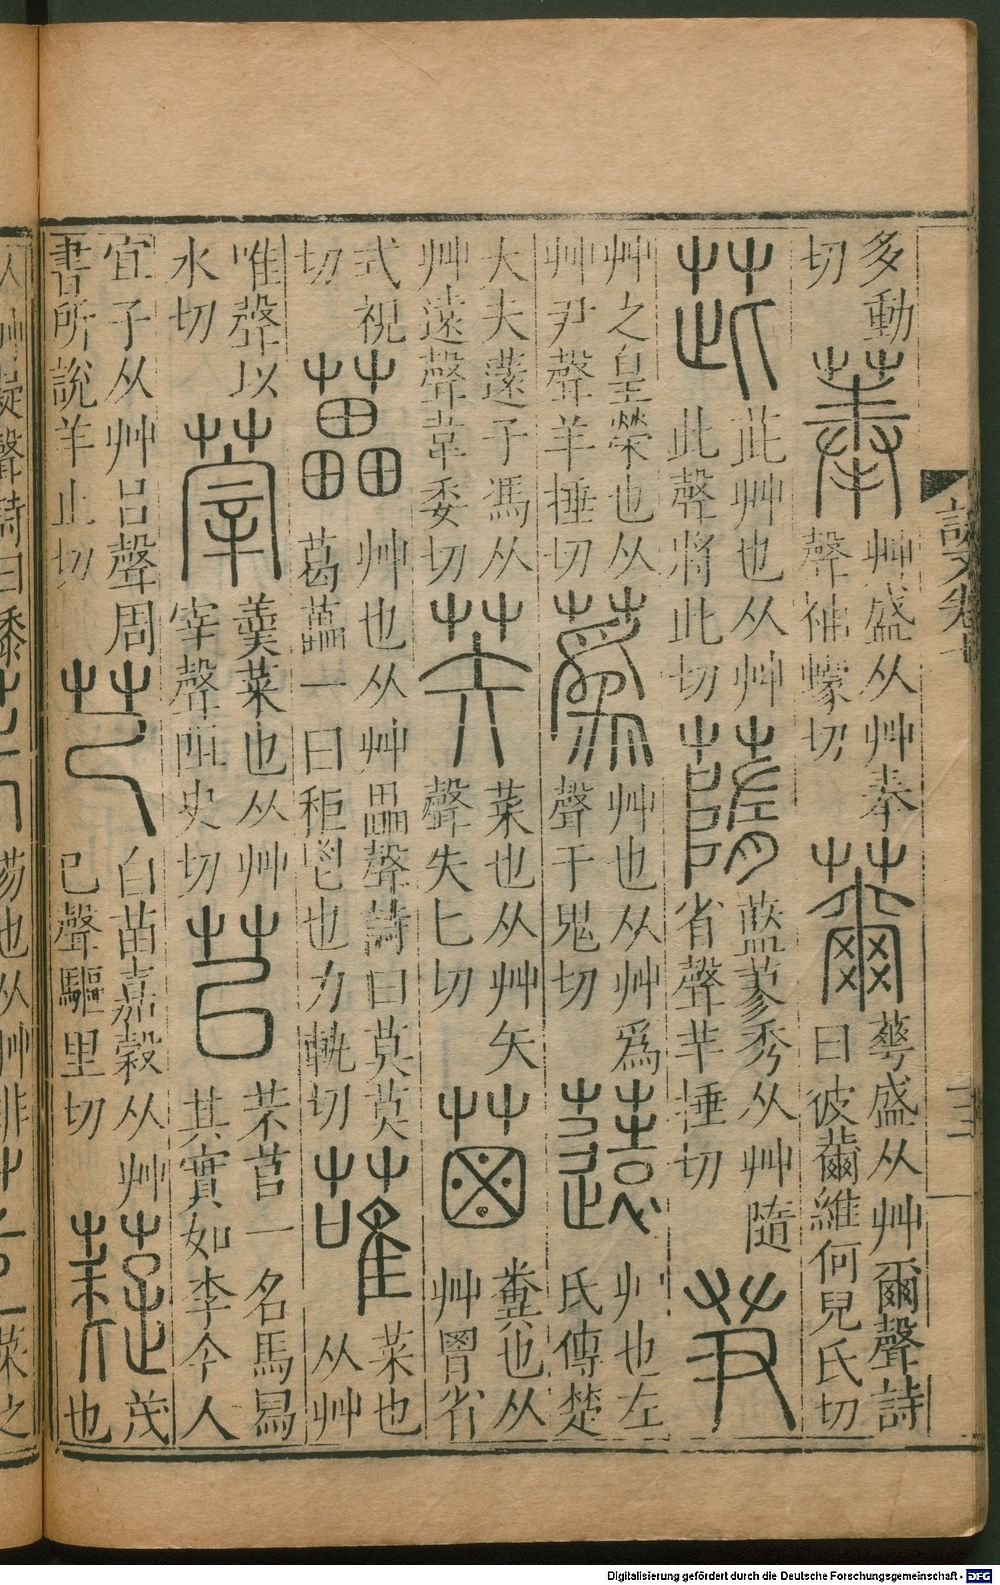 多動
切
菶
艸盛从艸奉
聲補蠓切
薾
華盛从艸爾聲詩
曰彼薾維何兒氏切
茈
茈艸也从艸
此聲將此切
䔺
藍蓼秀从艸隨
省聲羊捶切
芛
艸之皇榮也从
艸尹聲羊捶切
蔿
艸也从艸爲
聲于鬼切
薳
艸也左
氏傳楚
大夫薳子馮从
艸遠聲韋委切
菜也从艸矢
聲失匕切
糞也从
艸胃省
式視
切
藟
艸也从艸畾聲詩曰莫莫
葛藟一曰秬鬯也力軌切
蓶
菜也
从艸
唯聲以
水切
䔂
羹菜也从艸
宰聲阻史切
苢
芣苢一名馬舄
其實如李令人
宜子从艸㠯聲周
書所說羊止切
芑
白苗嘉穀从艸
己聲驅里切
茂
也
說文卷七
三
Digitalisierung gefördert durch die Deutsche Forschungsgemeinschaft - DFG